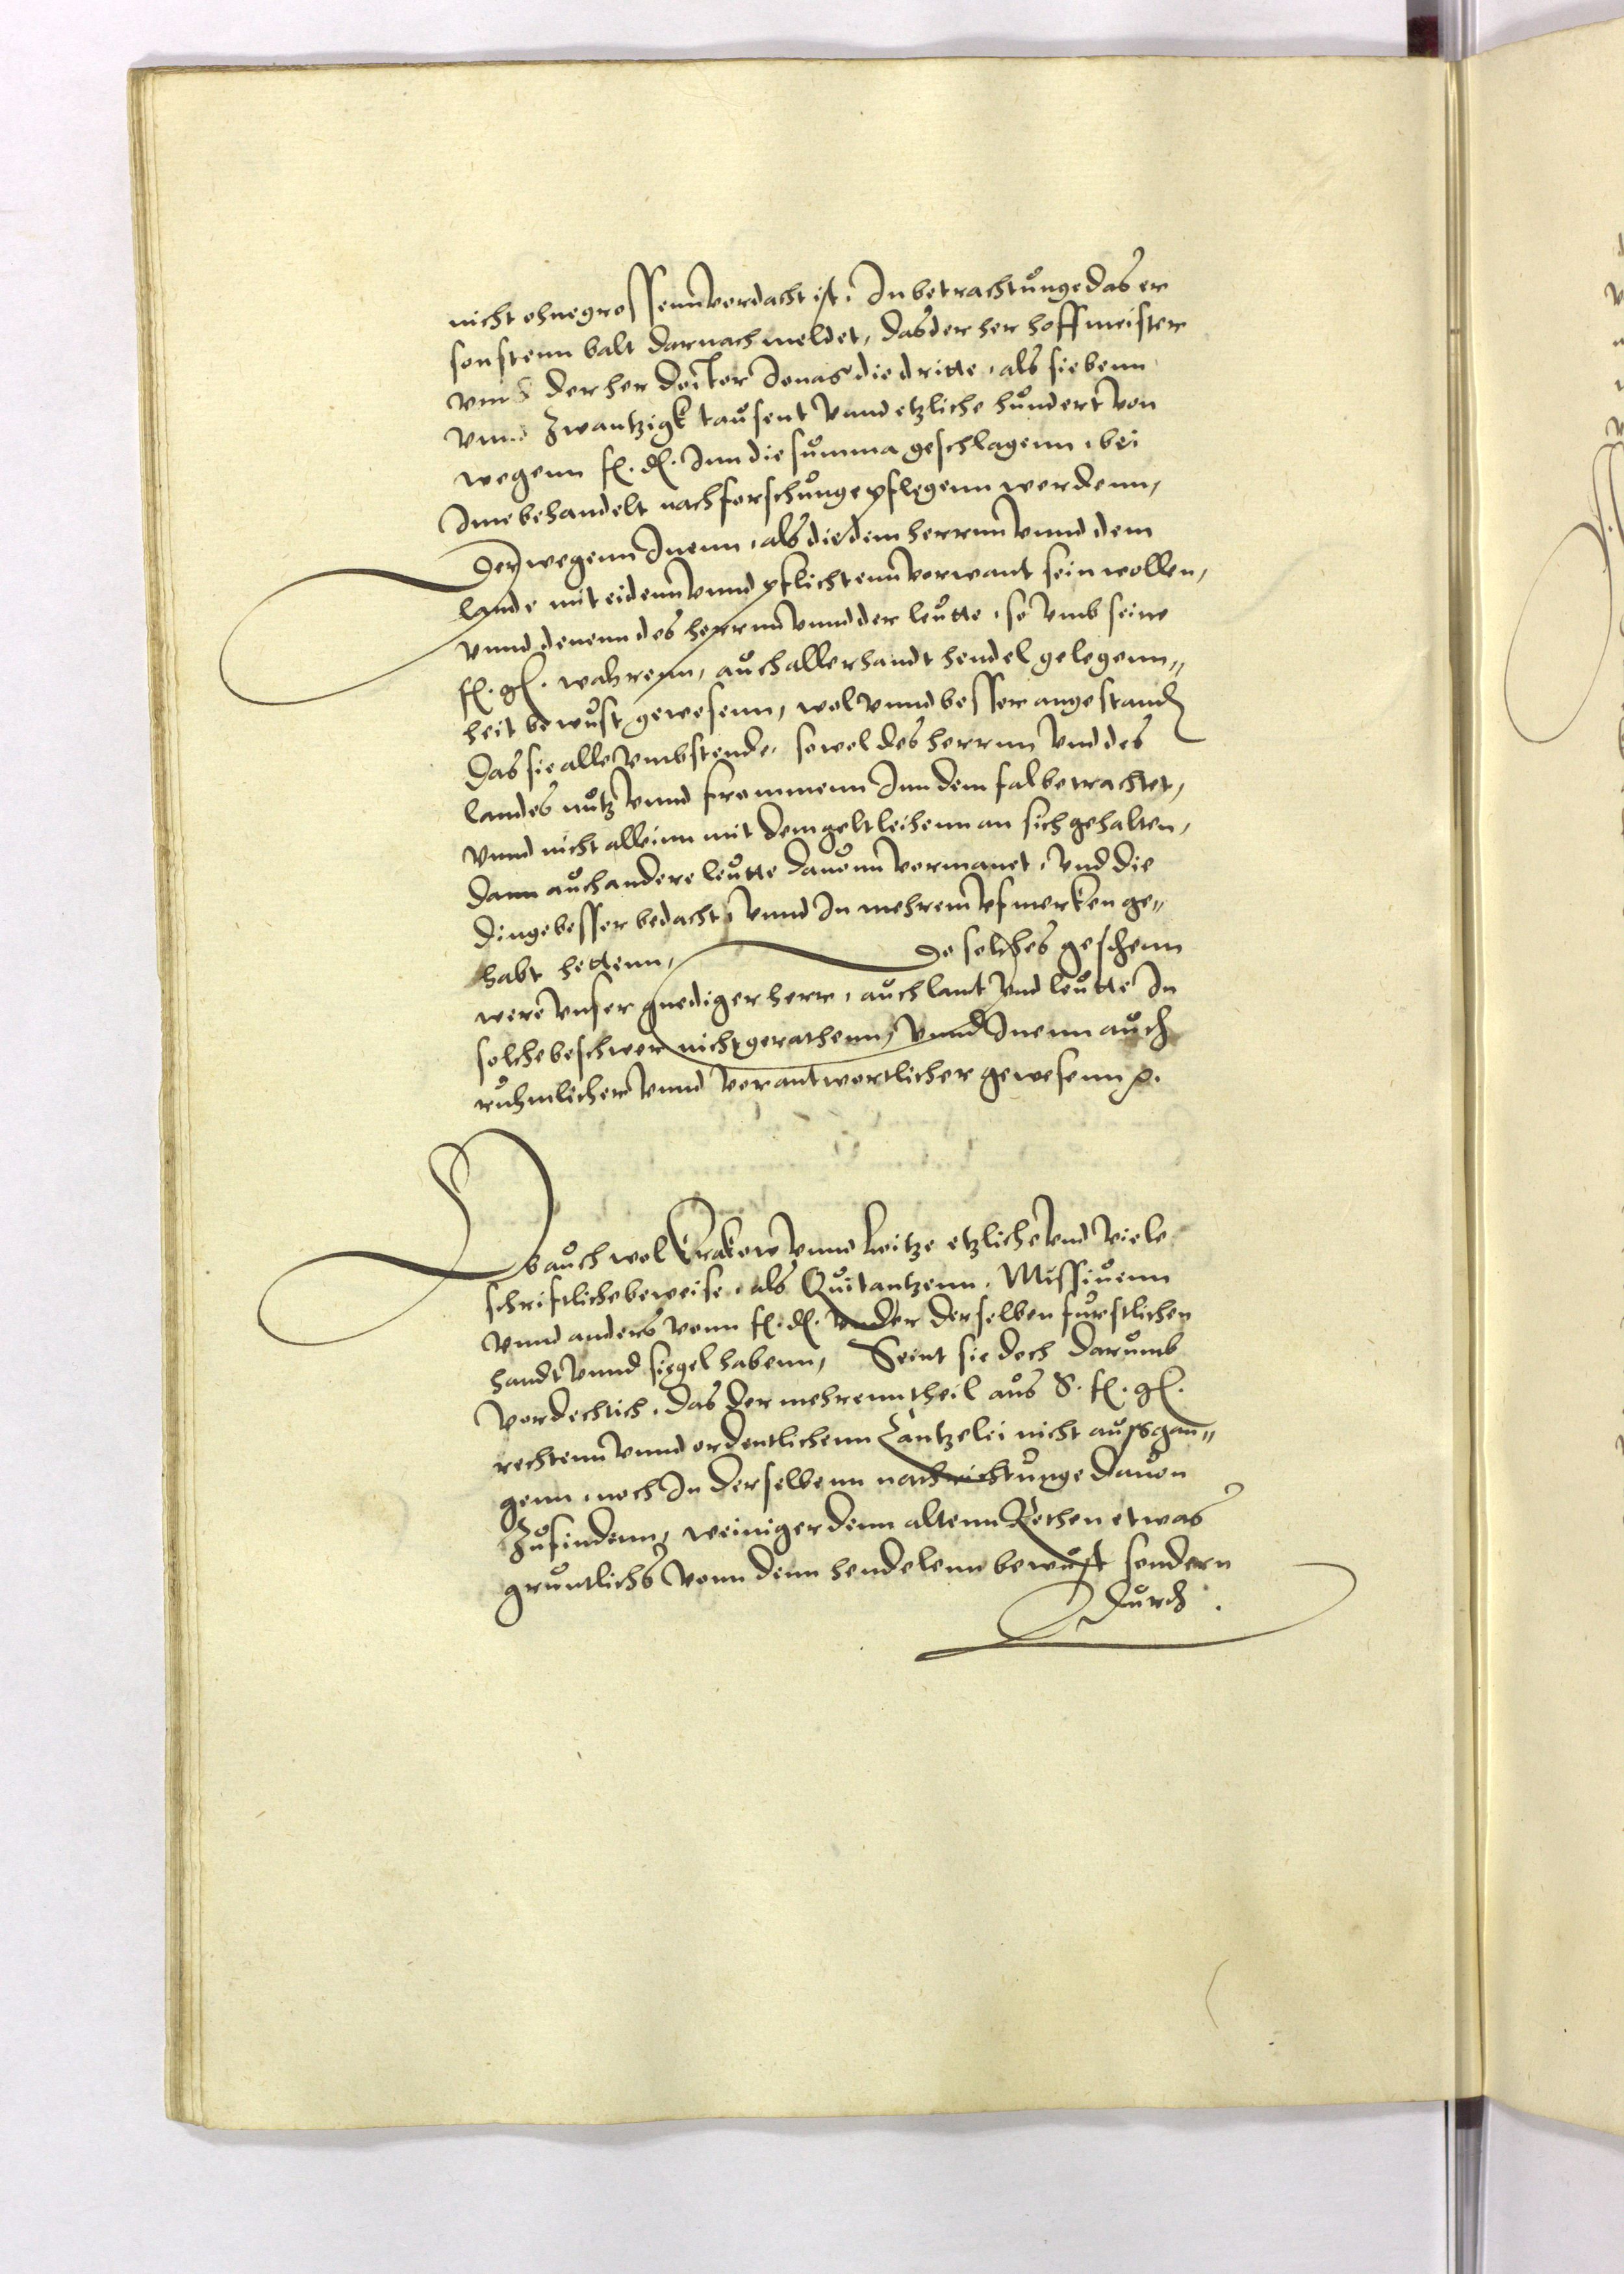 nicht ohne grossenn vordacht ist. In betrachtunge das er
sonstenn balt darnach meldet, das der her hoffmeister
vnd der her doctor Jonas die dritte, als siebenn
vnnd zwantzigk tausent vnnd etzliche hundert von
wegenn f. d. Inn die summa geschlagenn, bei
Ime behandelt nachforschunge pflegenn werdenn,
Derwegenn Inenn, als die dem herrnn vnnd dem
lande mit eidenn vnnd pflichtenn vorwant sein wollen,
vnnd denenn des herrnn vnnd der leutte, so vmb seine
f. g. wahrenn, auch allerhandt hendel gelegenn„
heit bewust gewesenn, wol vnnd besser angestanden
Das sie alle vmbstende, sowol des herrnn vnd des
landes nutz vnnd frommenn Inn dem fal betrachtet,
vnnd nicht alleinn mit dem gelt leihenn an sich gehalten,
dann auch andere leutte dauonn vormanet, vnd die
dinge besser bedacht, vnnd In mehrem vfmerken ge„
habt hettenn, Do solches geschenn
were vnser gnediger herr, auch lant vnd leutte In
solche beschwer nicht gerathenn, vnnd Inenn auch
ruhmlicher vnnd vorantwortlicher gewesenn p.
Ob auch wol Krakow vnnd Loitze etzliche vnd viele
schriftliche beweise, als Quitantzenn, Missiuenn
vnnd anders vonn f. d. vnder derselben furstlichen
handt vnnd siegel habenn, Seint sie doch darumb
vordechtich, das der mehrenntheil aus S. f. g.
rechtenn vnnd ordentlichenn Cantzelei nicht aussgan„
genn, noch In derselbenn nachrichtunge dauon
Zufindenn, weiniger denn altenn Rethen etwas
gruntlichs vonn denn hendelenn bewust sondern
Durch